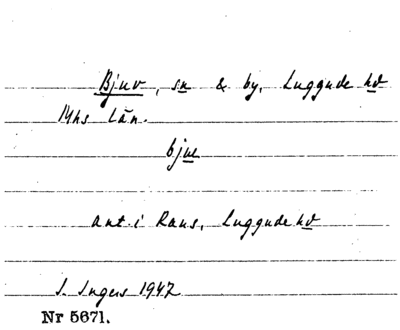 Bjuv, sn & by, Luggude hd
Mhs län.
bjuu
ant. i Raus, Luggude hd
I. Ingers 1947
Nr 5671.